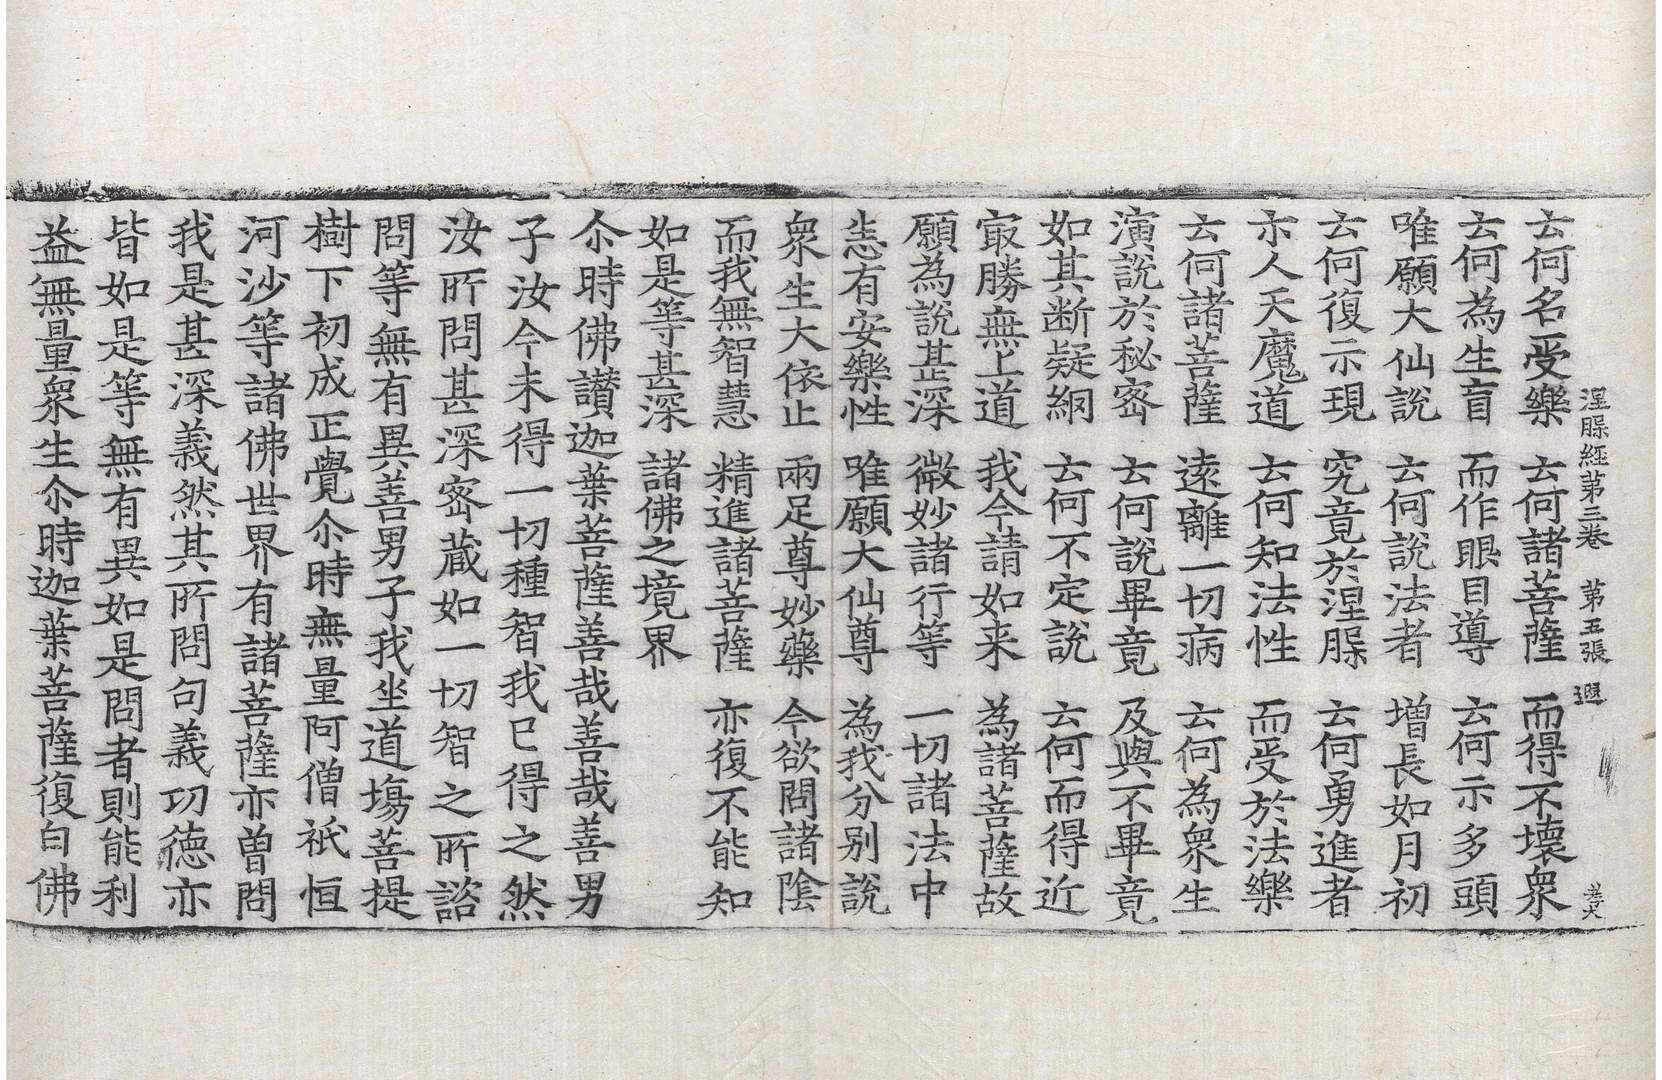 涅槃経第三卷　第五張　遐
云何名受樂　云何諸菩薩　而得不壞衆
云何為生盲　而作眼目導　云何示多頭
唯願大仙說　云何說法者　增長如月初
云何復示現　究竟於涅槃　云何勇進者
示人天魔道　云何知法性　而受於法樂
云何諸菩薩　遠離一切病　云何為衆生
演說於秘密　云何說畢竟　及與不畢竟
如其断疑網　云何不定說　云何而得近
冣勝無上道　我今請如来　為諸菩薩故
願為說甚深　微妙諸行等　一切諸法中
悉有安樂性　唯願大仙尊　為我分别說
衆生大依止　兩足尊妙藥　今欲問諸陰
而我無智慧　精進諸菩薩　亦復不能知
如是等甚深　諸佛之境界
尒時佛讃迦葉菩薩善哉善哉善男
子汝今未得一切種智我已得之然
汝所問甚深密蔵如一切智之所諮
問等無有異善男子我坐道塲菩提
樹下初成正覺尒時無量阿僧祇恒
河沙等諸佛世界有諸菩薩亦曽問
我是甚深義然其所問句義功德亦
皆如是等無有異如是問者則能利
益無量衆生尒時迦葉菩薩復白佛